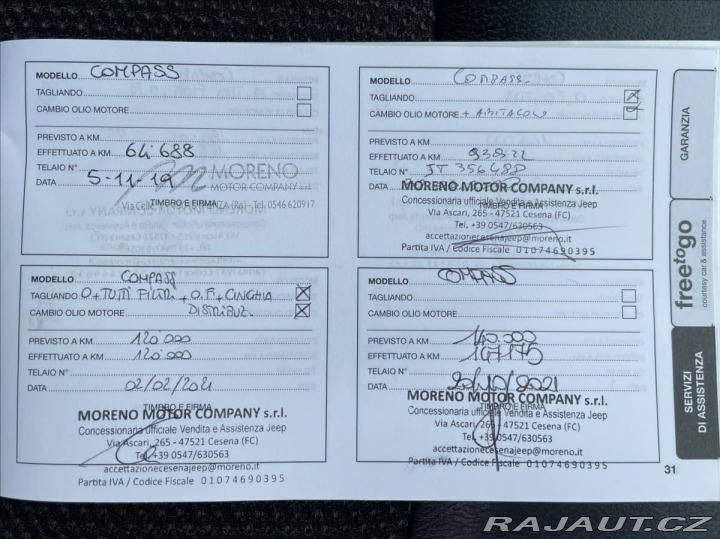 MODELLO COMPASS
TAGLIANDO
CAMBIO OLIO MOTORE
PREVISTO A KM
EFFETTUATO A KM 64 688
TELAIO N°
DATA 5-11-19
MORENO
MOTOR COMPANY
TIMBRO E FIRMA
(Ra) - Tel. 0546 620917
MODELLO COMPASS
TAGLIANDO
CAMBIO OLIO MOTORE + ABITACOLO
PREVISTO A KM
EFFETTUATO A KM 93822
TELAIO N° JT 356488
DATA
MORENO MOTOR COMPANY s.r.l.
TIMBRO E FIRMA
Concessionaria ufficiale Vendita e Assistenza Jeep
Via Ascari, 265 - 47521 Cesena (FC)
Tel. +39 0547/630563
accettazionecesenajeep@moreno.it
Partita IVA / Codice Fiscale 01074690395
MODELLO COMPASS
TAGLIANDO O + TUTTI FILTRI + O.F + CINGHIA
CAMBIO OLIO MOTORE DISTRIBUZ.
PREVISTO A KM 120 000
EFFETTUATO A KM 120 000
TELAIO N°
DATA 02/02/2021
TIMBRO E FIRMA
MORENO MOTOR COMPANY s.r.l.
Concessionaria ufficiale Vendita e Assistenza Jeep
Via Ascari, 265 - 47521 Cesena (FC)
Tel. +39 0547/630563
accettazionecesenajeep@moreno.it
Partita IVA / Codice Fiscale 01074690395
MODELLO COMPASS
TAGLIANDO
CAMBIO OLIO MOTORE
PREVISTO A KM 140.000
EFFETTUATO A KM 147175
TELAIO N°
DATA 20/10/2021
MORENO MOTOR COMPANY s.r.l.
TIMBRO E FIRMA
Concessionaria ufficiale Vendita e Assistenza Jeep
Via Ascari, 265 - 47521 Cesena (FC)
Tel. +39 0547/630563
accettazionecesenajeep@moreno.it
Partita IVA / Codice Fiscale 01074690395
31
GARANZIA
freetogo
courtesy car & assistance
SERVIZI
DI ASSISTENZA
RAJAUT.CZ